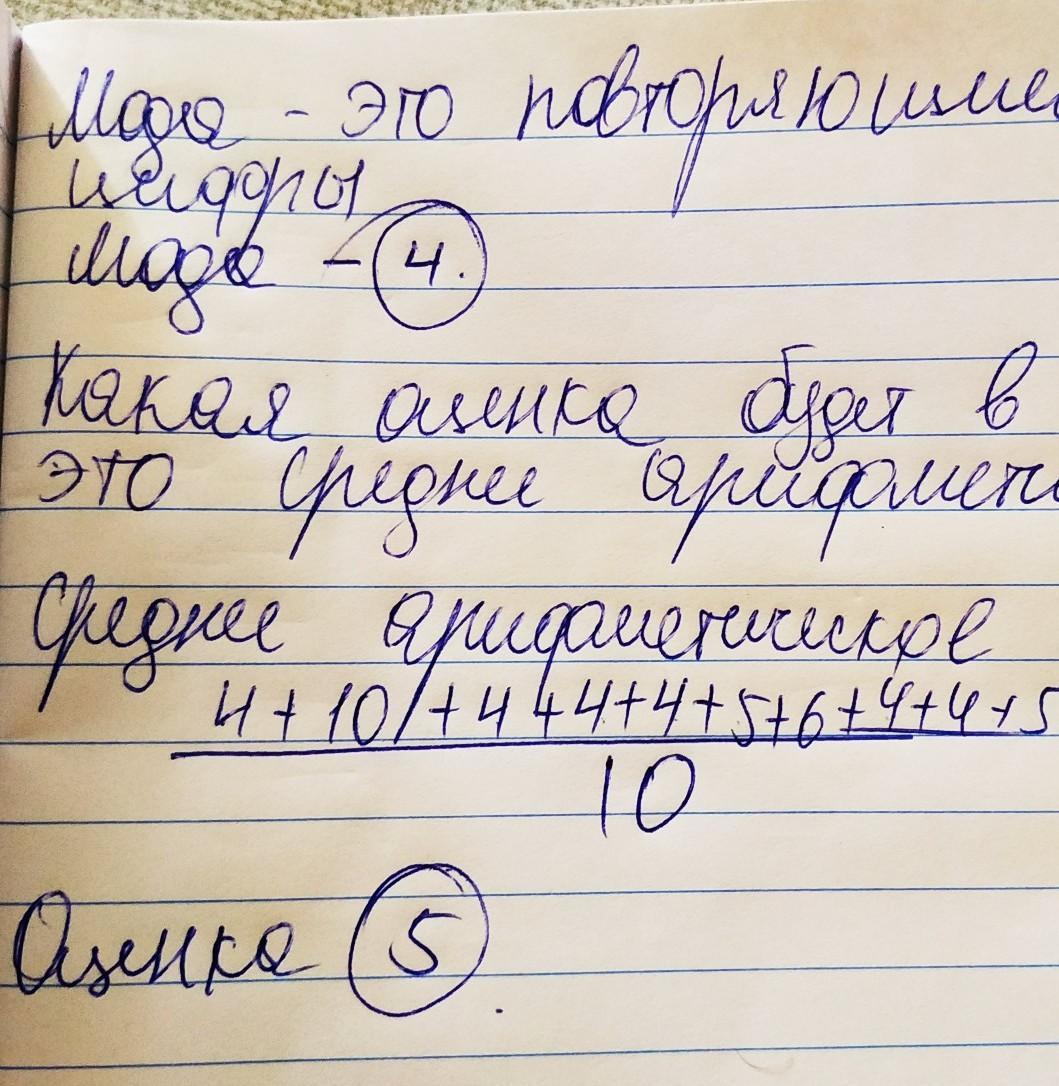 Мода - это повторяющиеся
цифры
Мода - 4.
Какая оценка будет в
это среднее арифмети
Среднее арифметическое
4+10/+4+4+4+5+6+4+4+5
10
Оценка 5.